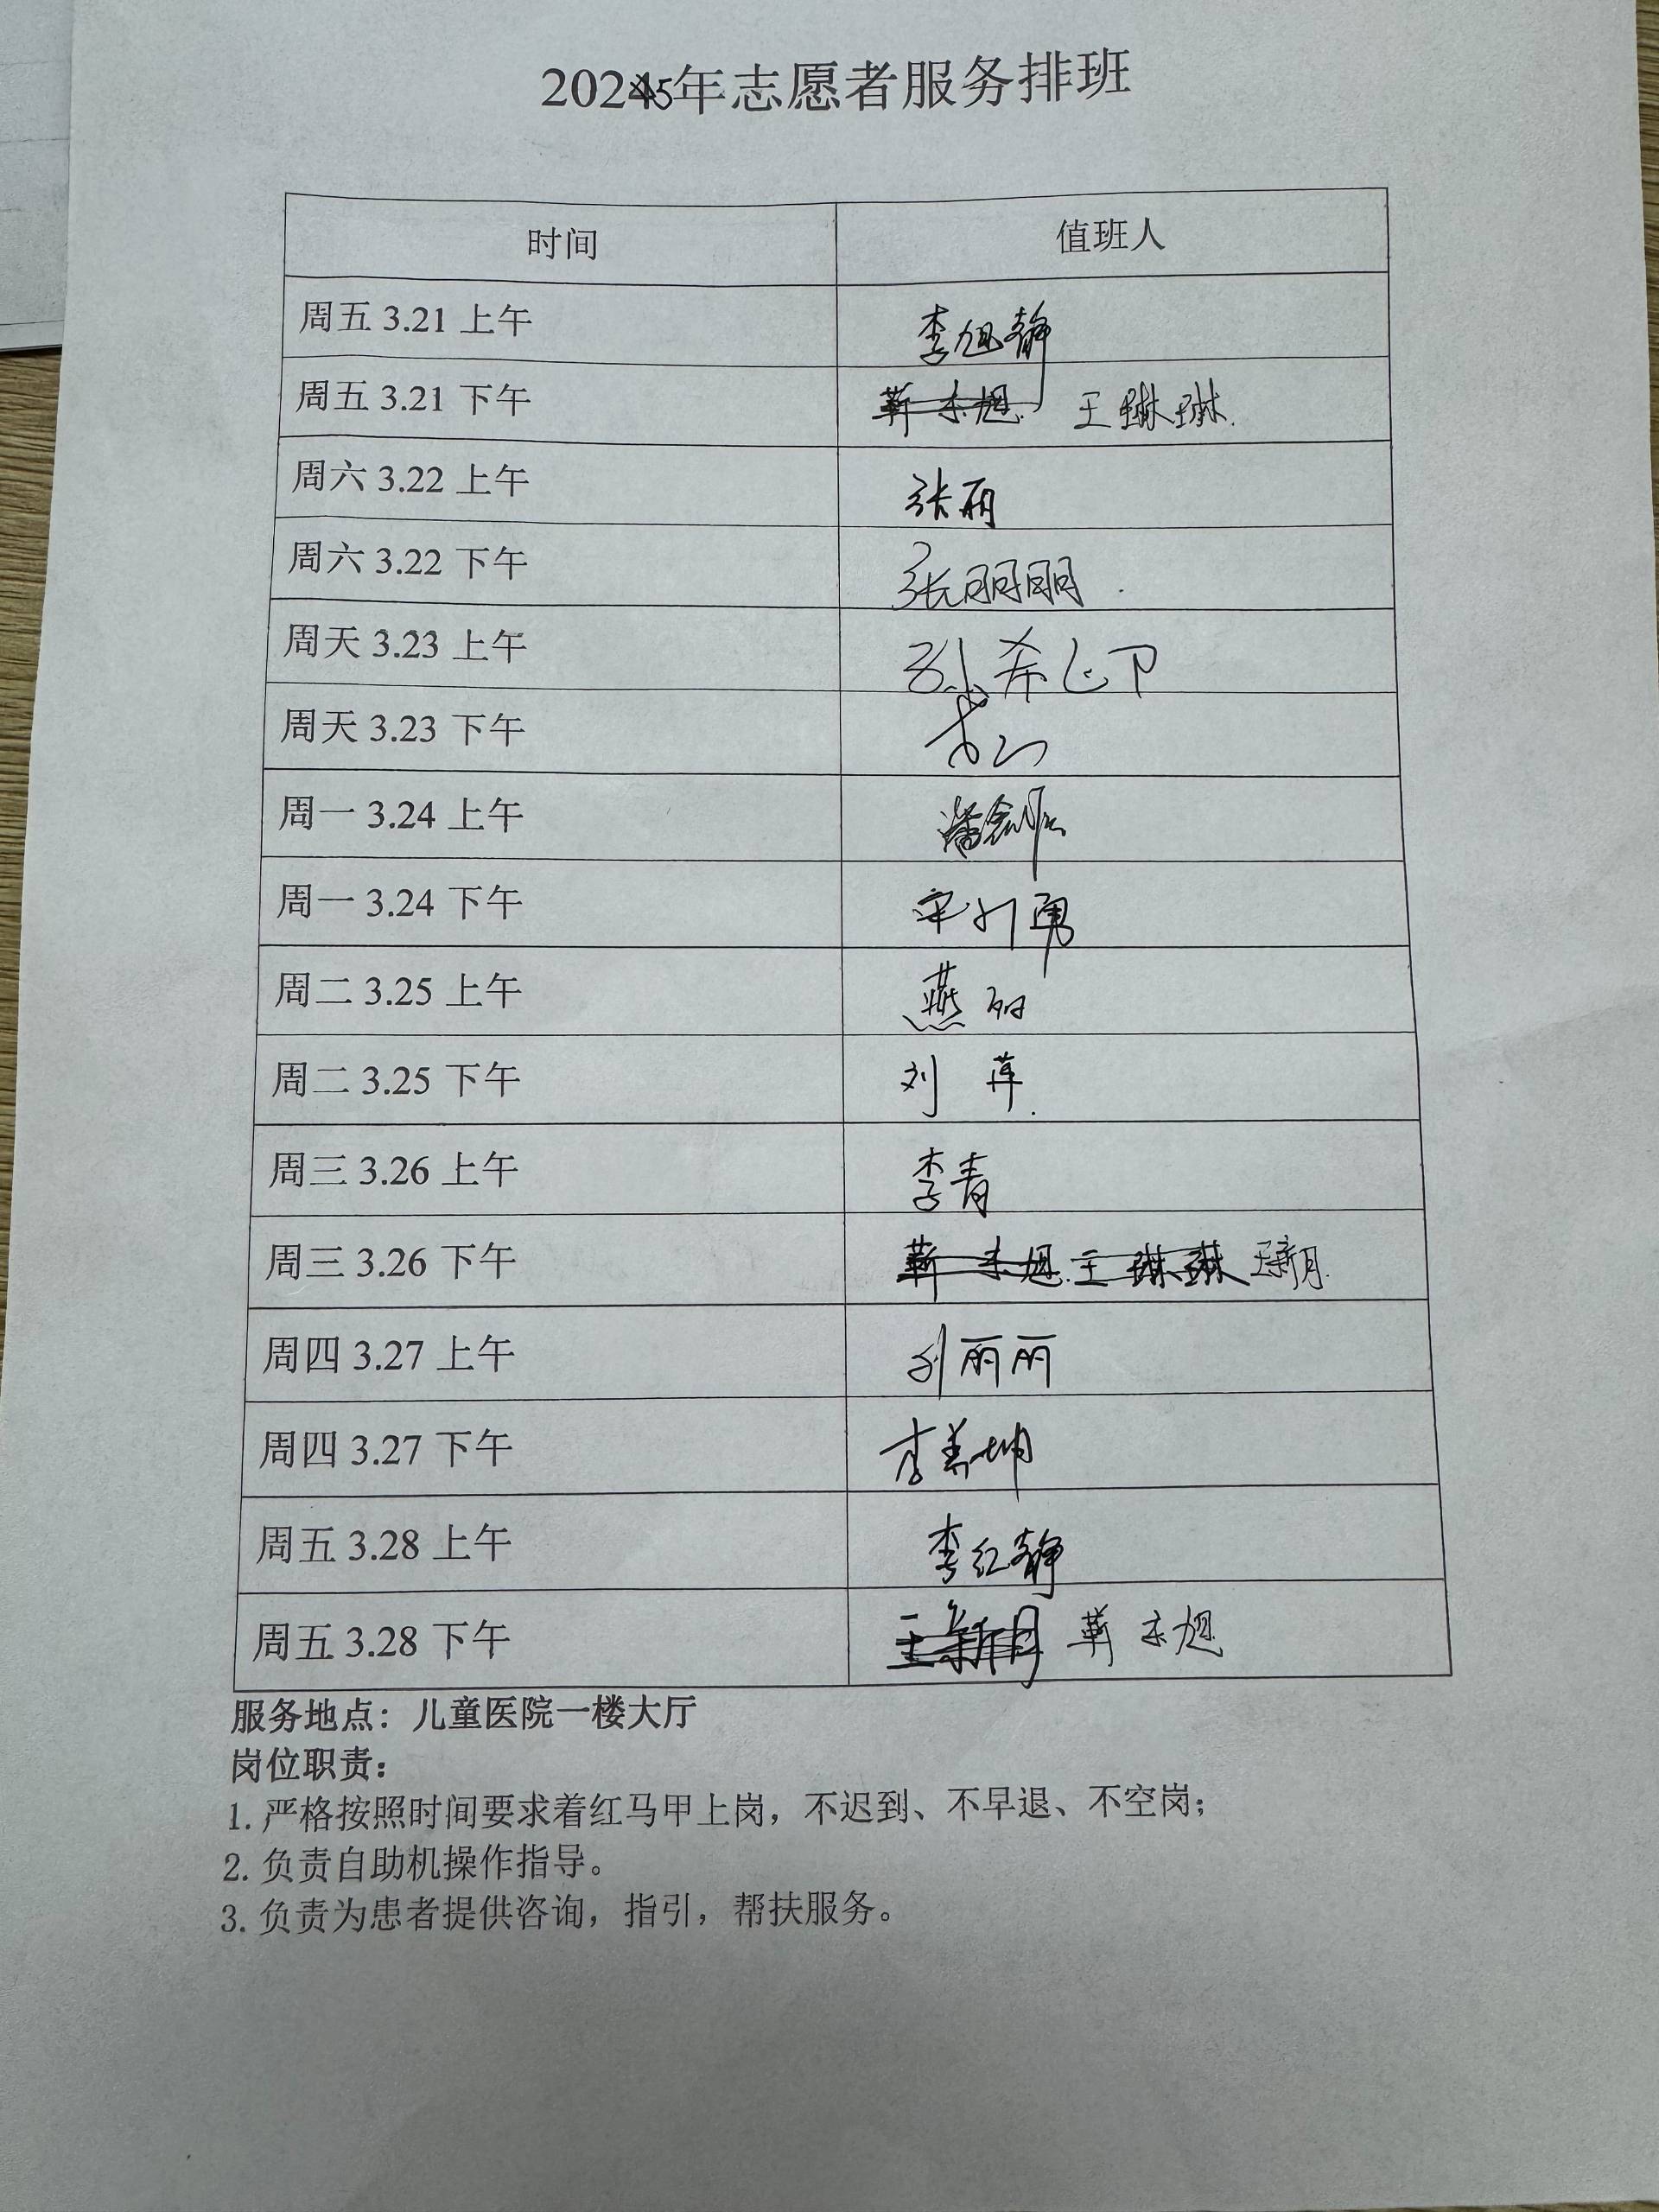 2025年志愿者服务排班
时间 值班人
周五 3.21 上午 李旭静
周五 3.21 下午 靳东旭 王琳琳
周六 3.22 上午 张丽
周六 3.22 下午 张丽丽
周天 3.23 上午
周天 3.23 下午
周一 3.24 上午
周一 3.24 下午
周二 3.25 上午 燕丽
周二 3.25 下午 刘萍
周三 3.26 上午 李青
周三 3.26 下午 王琳琳 王新月
周四 3.27 上午 刘丽丽
周四 3.27 下午 李美坤
周五 3.28 上午 李红静
周五 3.28 下午 王新月
服务地点：儿童医院一楼大厅
岗位职责：
1. 严格按照时间要求着红马甲上岗，不迟到、不早退、不空岗；
2. 负责自助机操作指导。
3. 负责为患者提供咨询，指引，帮扶服务。